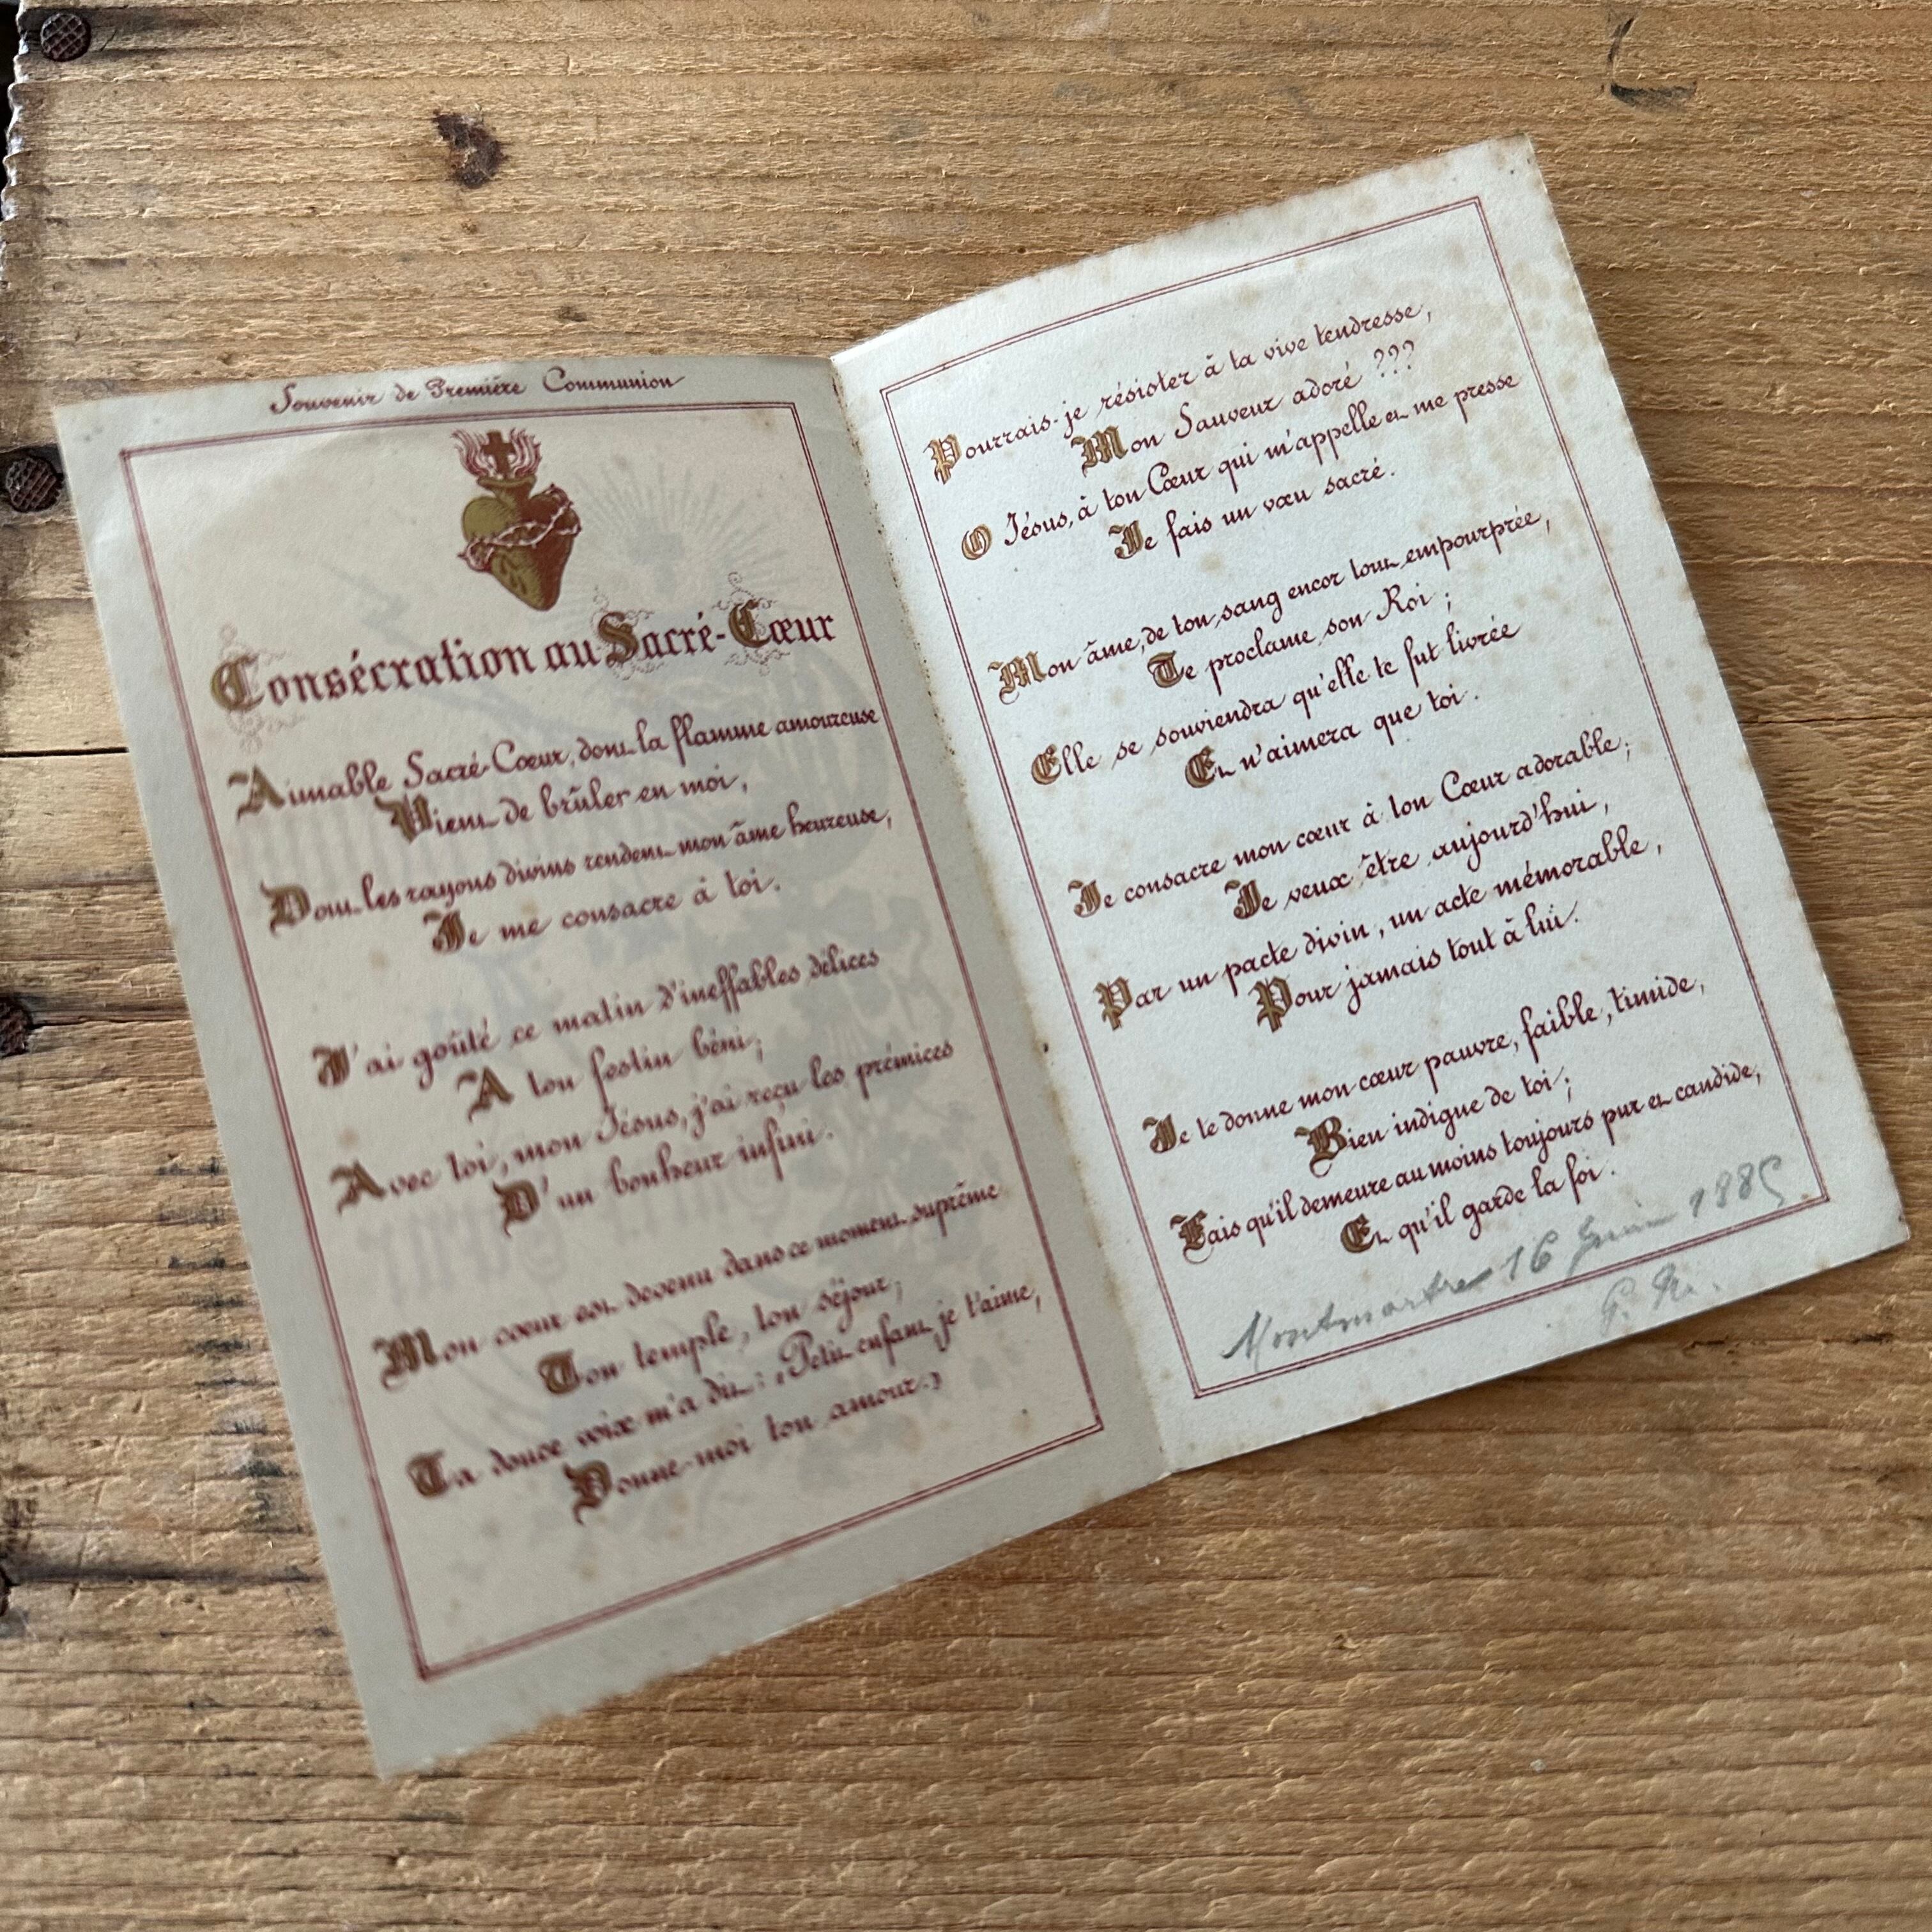 Souvenir de Première Communion
Consécration au Sacré-Cœur
Aimable Sacré-Cœur, dont la flamme amoureuse
Vient de brûler en moi,
Dont les rayons divins rendent mon âme heureuse,
Je me consacre à toi.
J'ai goûté ce matin d'ineffables délices
A ton festin béni;
Avec toi, mon Jésus, j'ai reçu les prémices
D'un bonheur infini.
Mon cœur est devenu dans ce moment suprême
Ton temple, ton séjour;
Ta douce voix m'a dit: «Petit enfant, je t'aime,
Donne-moi ton amour.»
Pourrais-je résister à ta vive tendresse,
Mon Sauveur adoré ???
O Jésus, à ton Cœur qui m'appelle et me presse
Je fais un vœu sacré.
Mon âme, de ton sang encor tout empourprée,
Te proclame son Roi;
Elle se souviendra qu'elle te fut livrée
Et n'aimera que toi.
Je consacre mon cœur à ton Cœur adorable;
Je veux être aujourd'hui,
Par un pacte divin, un acte mémorable,
Pour jamais tout à lui.
Je te donne mon cœur pauvre, faible, timide,
Bien indigne de toi;
Fais qu'il demeure au moins toujours pur et candide,
Et qu'il garde la foi.
Montmartre 16 Juin 1885